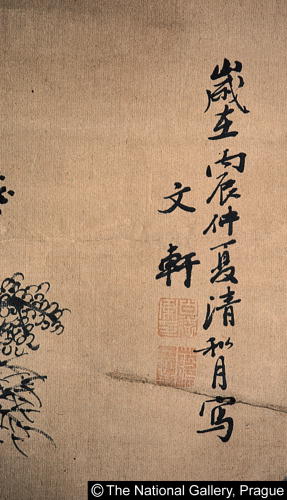 歲在丙辰仲夏清和月寫
文軒
© The National Gallery, Prague